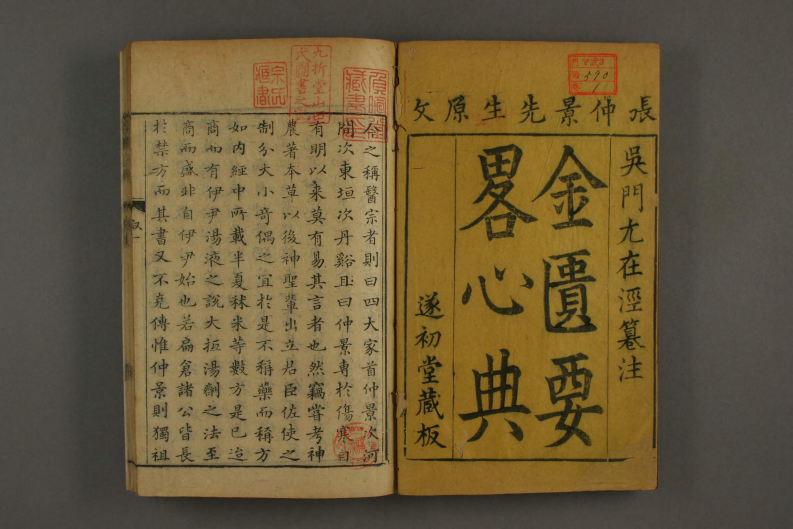 張仲景先生原文
吳門尤在涇纂注
金匱要
畧心典
遂初堂藏板
590
今之稱醫宗者則曰四大家首仲景次河
間次東垣次丹谿且曰仲景專於傷寒自
有明以來莫有易其言者也然竊嘗考神
農著本草以後神聖輩出立君臣佐使之
制分大小奇偶之宜於是不稱藥而稱方
如内經中所載半夏秫米等數方是已迨
商而有伊尹湯液之說大抵湯劑之法至
商而盛非自伊尹始也若扁倉諸公皆長
於禁方而其書又不克傳惟仲景則獨祖
叙一